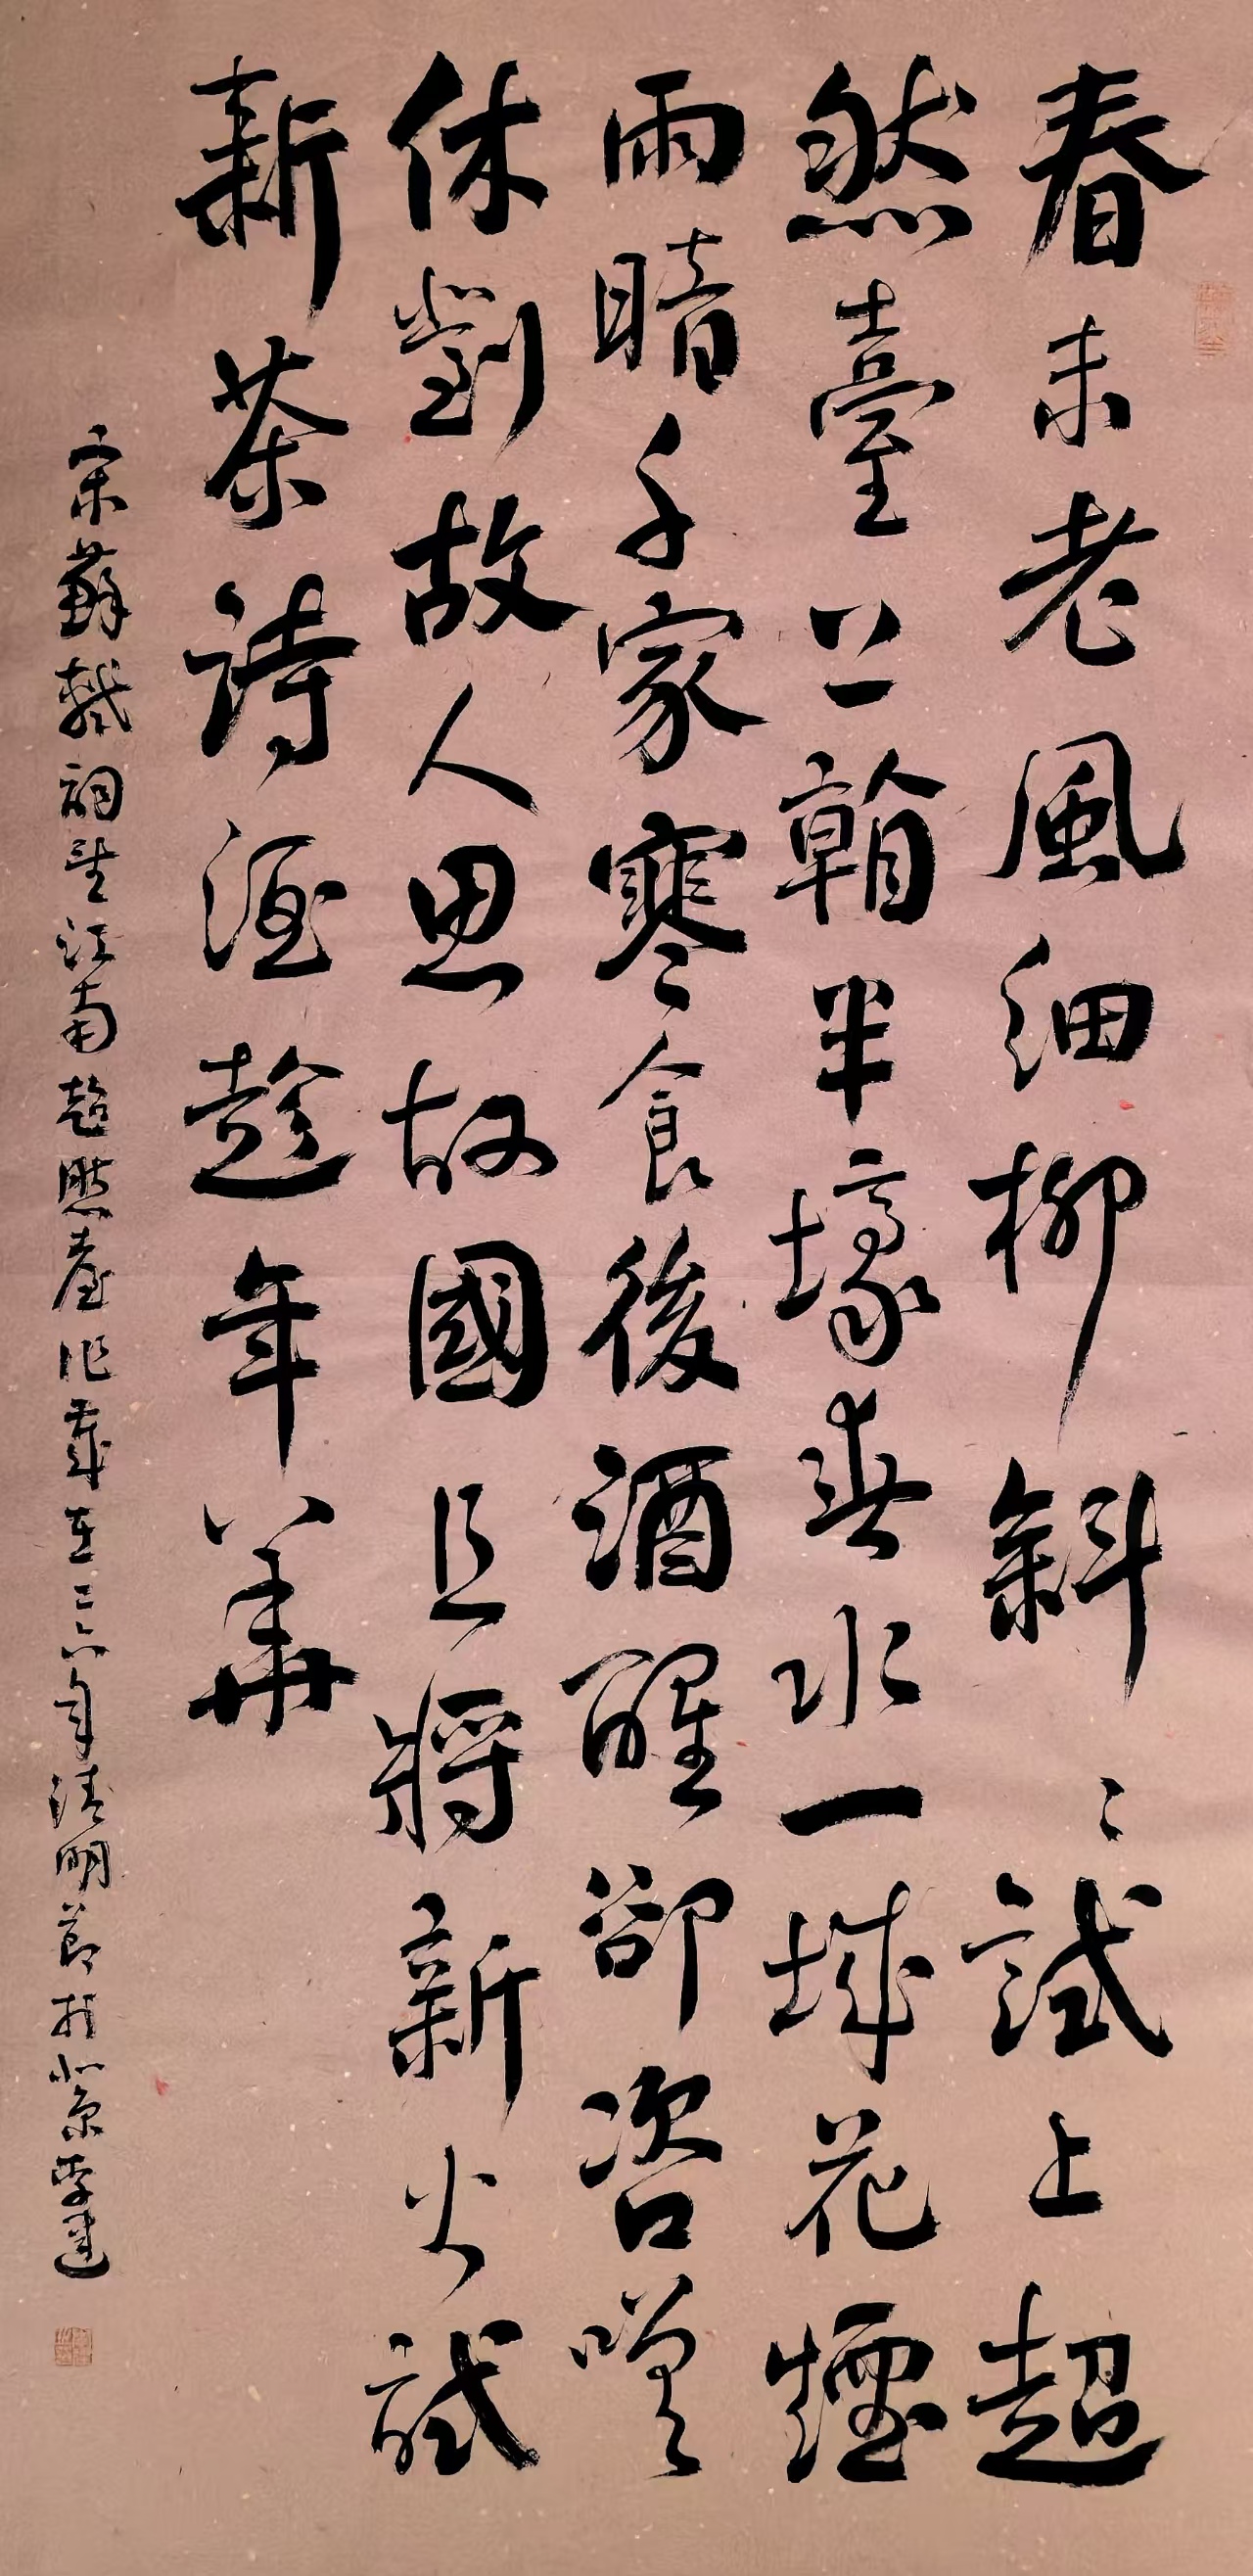 春未老風細柳斜〻試上超
然臺上看半壕春水一城花煙
雨暗千家寒食後酒醒卻咨嗟
休對故人思故國且將新火試
新茶詩酒趁年華
宋蘇軾詞望江南超然臺作歲在年清明節於北京